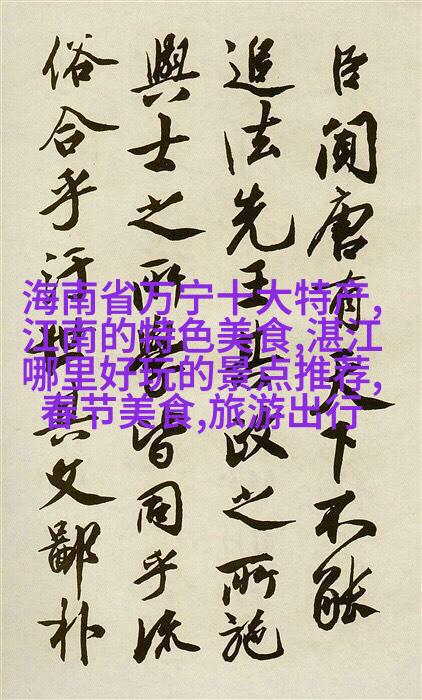 臣聞唐有天下不能
追法先王其政之所施
與士之所學皆同乎流
俗合乎汙世其文鄙朴
海南省万宁十大特产,
江南的特色美食,湛江
哪里好玩的景点推荐,
春节美食,旅游出行